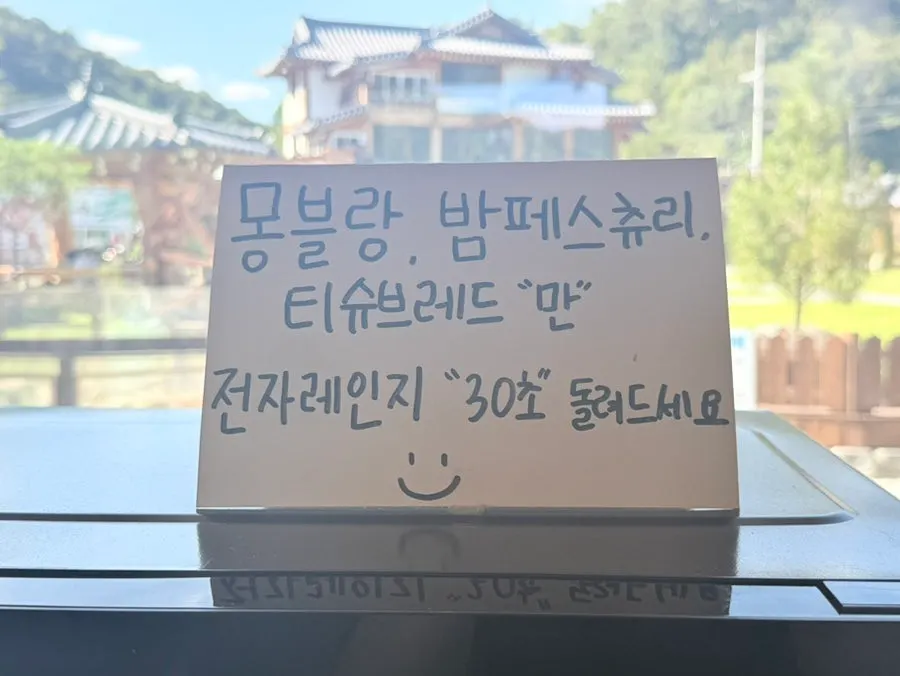 몽블랑, 밤페스츄리,
티슈브레드 "만"
전자레인지 "30초" 돌려드세요